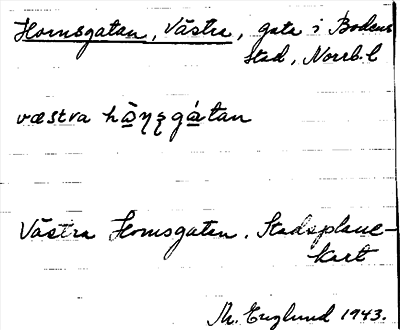 Hornsgatan, Västra, gata i Bodens
stad, Norrb. l
væstra hὰηʂgátan
Västra Hornsgatan. Stadsplane-
kart
Th. Englund 1943.